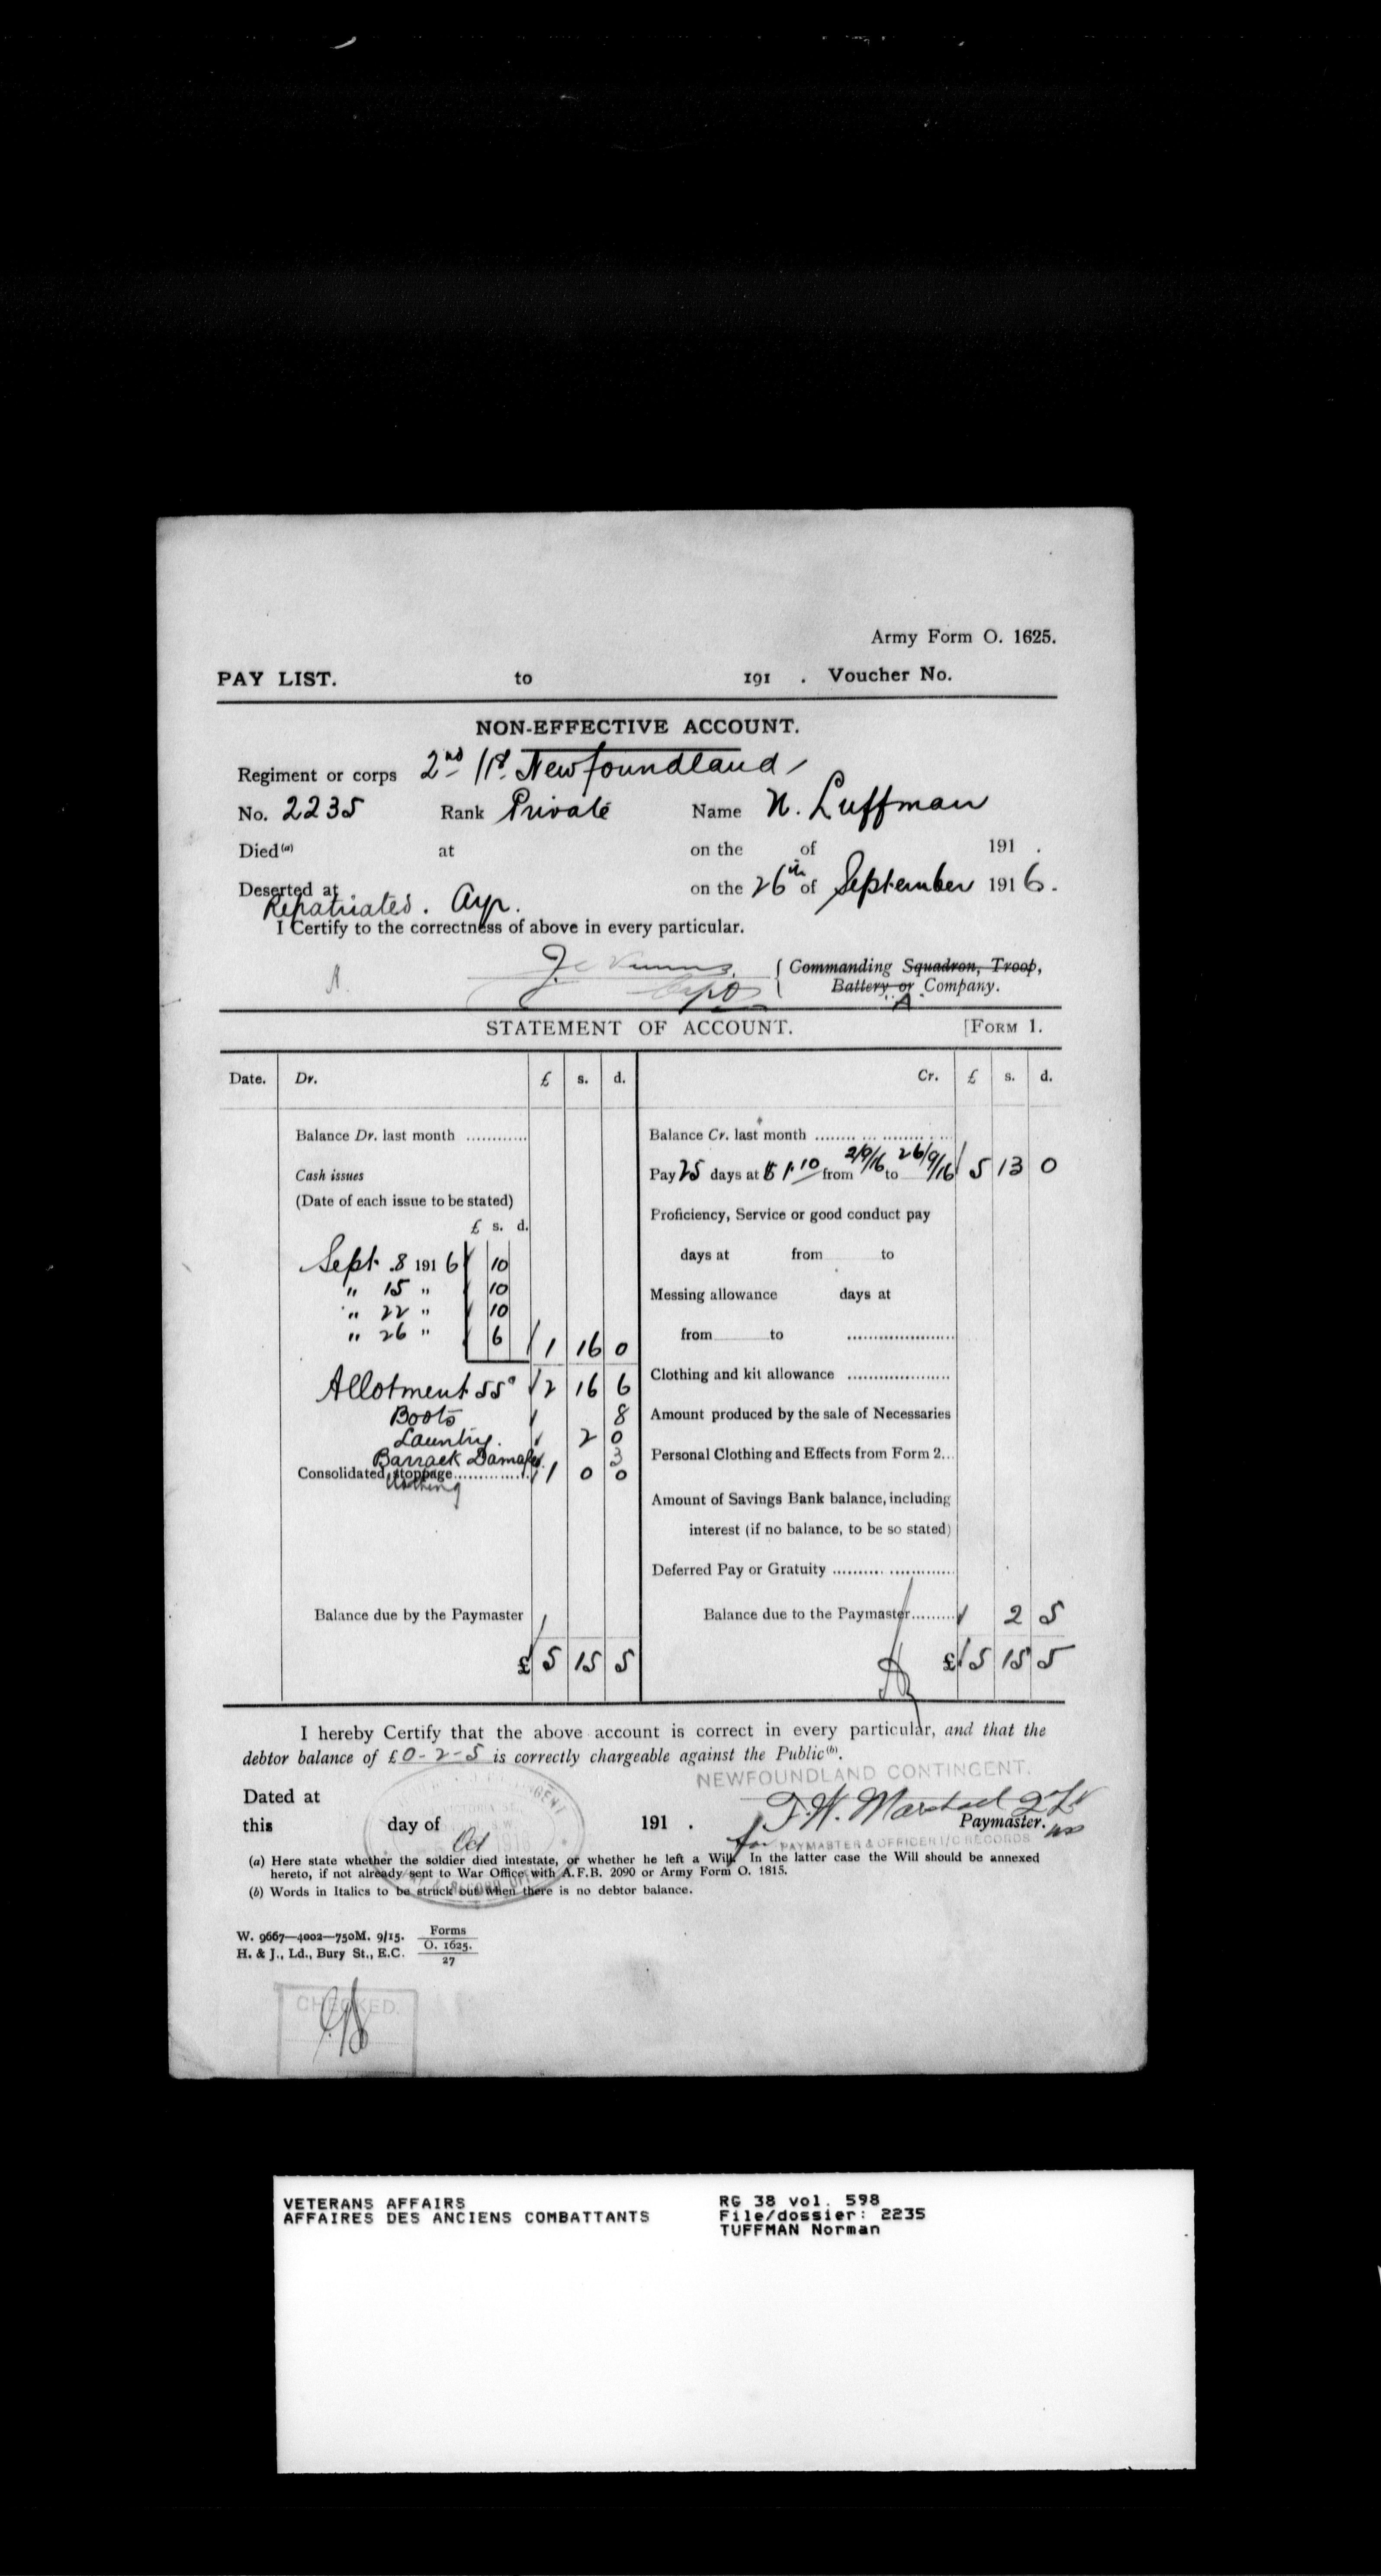 Army Form O. 1625.
PAY LIST. to 191 . Voucher No.
NON-EFFECTIVE ACCOUNT.
Regiment or corps 2nd /1st. Newfoundland
No. 2235 Rank Private Name N. Luffman
Died(a) at on the of 191 .
Deserted at on the 26th of September 1916.
Repatriated. Ayr.
I Certify to the correctness of above in every particular.
Commanding Squadron, Troop,
Battery or Company.
A
STATEMENT OF ACCOUNT. [FORM 1.
Date. Dr. £ s. d. Cr. £ s. d.
Balance Dr. last month ............ Balance Cr. last month ........ ... ......... . ...
Cash issues Pay 25 days at $1.10 from 2/9/16 to 26/9/16 5 13 0
(Date of each issue to be stated) Proficiency, Service or good conduct pay
£ s. d.
days at from to
Sept. 8 1916 10
" 15 " 10 Messing allowance days at
" 22 " 10
" 26 " 6 1 16 0 from to .....................
Allotment 55c 2 16 6 Clothing and kit allowance ...................
Boots 8 Amount produced by the sale of Necessaries
Laundry. 2 0
Barrack Damages. 3 Personal Clothing and Effects from Form 2...
Consolidated stoppage............... 1 0 0
Clothing
Amount of Savings Bank balance, including
interest (if no balance, to be so stated)
Deferred Pay or Gratuity .......... .............
Balance due by the Paymaster Balance due to the Paymaster......... 2 5
£ 5 15 5 £ 5 15 5
I hereby Certify that the above account is correct in every particular, and that the
debtor balance of £0-2-5 is correctly chargeable against the Public(b).
NEWFOUNDLAND CONTINGENT.
Dated at
T. W. Marshall
this day of Oct 191 . Paymaster.
for PAYMASTER & OFFICER I/C RECORDS
(a) Here state whether the soldier died intestate, or whether he left a Will. In the latter case the Will should be annexed
hereto, if not already sent to War Office with A.F.B. 2090 or Army Form O. 1815.
(b) Words in Italics to be struck out when there is no debtor balance.
W. 9667—4002—750M. 9/15. Forms
O. 1625.
H. & J., Ld., Bury St., E.C. 27
CHECKED.
VETERANS AFFAIRS RG 38 vol. 598
AFFAIRES DES ANCIENS COMBATTANTS File/dossier: 2235
TUFFMAN Norman